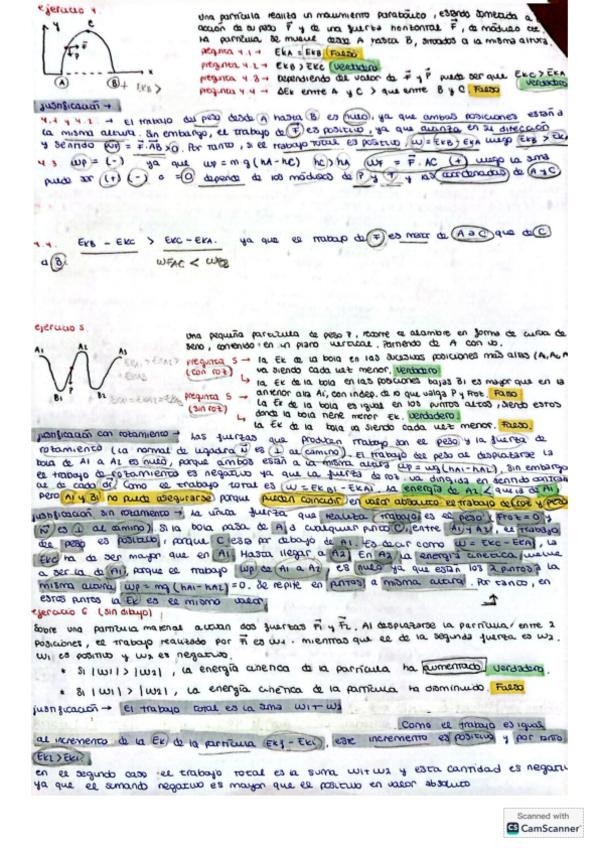 ejercicio 4.
Una partícula realiza un movimiento parabólico, estando sometida a
acción de su peso P y de una fuerza horizontal F, de módulo cte
La partícula se mueve desde A hasta B, situados a la misma altura.
pregunta 4.1 → EKA = EKB Falso
pregunta 4.2 → EKB > EKC Verdadero
pregunta 4.3 → Dependiendo del valor de F y P puede ser que EKC > EKA
Verdadero
pregunta 4.4 → ΔEK entre A y C > que entre B y C Falso
y
C
F
P
A
B
x
justificación →
4.1 y 4.2 - El trabajo del peso desde A hasta B es nulo, ya que ambas posiciones están a
la misma altura. Sin embargo, el trabajo de F es positivo, ya que avanza en su dirección
y siendo WF = F·AB > 0. Por tanto, si el trabajo total es positivo, W = EKB - EKA luego EKB > EKA
4.3. WP = (-) ya que WP = mg (hA-hC) hC > hA WF = F·AC (+) luego la suma
puede ser (+) (-) o = 0 depende de los módulos de P y F y las coordenadas de A y C
4.4. EKB - EKC > EKC - EKA. ya que el trabajo de F es menor de A a C que de C
a B.
WFAC < WFCB
ejercicio 5.
Una pequeña partícula de peso P, recorre el alambre en forma de curva de
seno, contenido en un plano vertical. Partiendo de A con v0.
A1
A2
A3
B1
B2
P
pregunta 5 (con roz) → la EK de la bola en las sucesivas posiciones más altas (A1, A2, A
va siendo cada vez menor. Verdadero
la EK de la bola en las posiciones bajas B1 es mayor que en la
anterior alta A1, con indep. de lo que valga P y Froz. Falso
pregunta 5 (sin roz) → la EK de la bola es igual en los puntos altos, siendo estos
donde la bola tiene menor EK. Verdadero
la EK de la bola va siendo cada vez menor. Falso
justificación con rozamiento → Las fuerzas que producen trabajo son el peso y la fuerza de
rozamiento (la normal de ligadura N es ⊥ al camino). El trabajo del peso al desplazarse la
bola de A1 a A2 es nulo, porque ambos están a la misma altura WP = mg (hA1-hA2). Sin embargo
el trabajo de rozamiento es negativo ya que la fuerza de roz. va dirigida en sentido contrario
al de cada dr. Como el trabajo total es W = EKA2 - EKA1, la energía de A2 < que la de A1
Pero A1 y B1 no puede asegurarse porque pueden coincidir en valor absoluto el trabajo de roz y peso
justificación sin rozamiento → la única fuerza, que realiza trabajo es el peso (Froz = 0 y
N es ⊥ al camino). Si la bola pasa de A1 a cualquier punto C, entre A1 y A2, el trabajo
del peso es positivo, porque C está por debajo de A1. Es decir como W = EKC - EKA1, la
EKC ha de ser mayor que en A1. Hasta llegar a A2. En A2 la energía cinética vuelve
a ser la de A1, porque el trabajo WP de A1 a A2, es nulo ya que están los 2 puntos a la
misma altura, WP = mg (hA1-hA2) = 0. Se repite en puntos a misma altura. Por tanto, en
estos puntos la EK es el mismo valor.
ejercicio 6 (sin dibujo)
Sobre una partícula material actúan dos fuertes F1 y F2. Al desplazarse la partícula entre 2
posiciones, el trabajo realizado por F1 es W1. mientras que el de la segunda fuerza es W2.
W1 es positivo y W2 es negativo.
• Si |W1| > |W2|, la energía cinética de la partícula ha aumentado. Verdadero
• Si |W1| > |W2|, la energía cinética de la partícula ha disminuido. Falso
justificación → El trabajo total es la suma W1 + W2
Como el trabajo es igual
al incremento de la EK de la partícula EKf - EKi, este incremento es positivo y por tanto
EK2 > EK1.
en el segundo caso el trabajo total es la suma W1+W2 y esta cantidad es negativ
ya que el sumando negativo es mayor que el positivo en valor absoluto
Scanned with
CS CamScanner